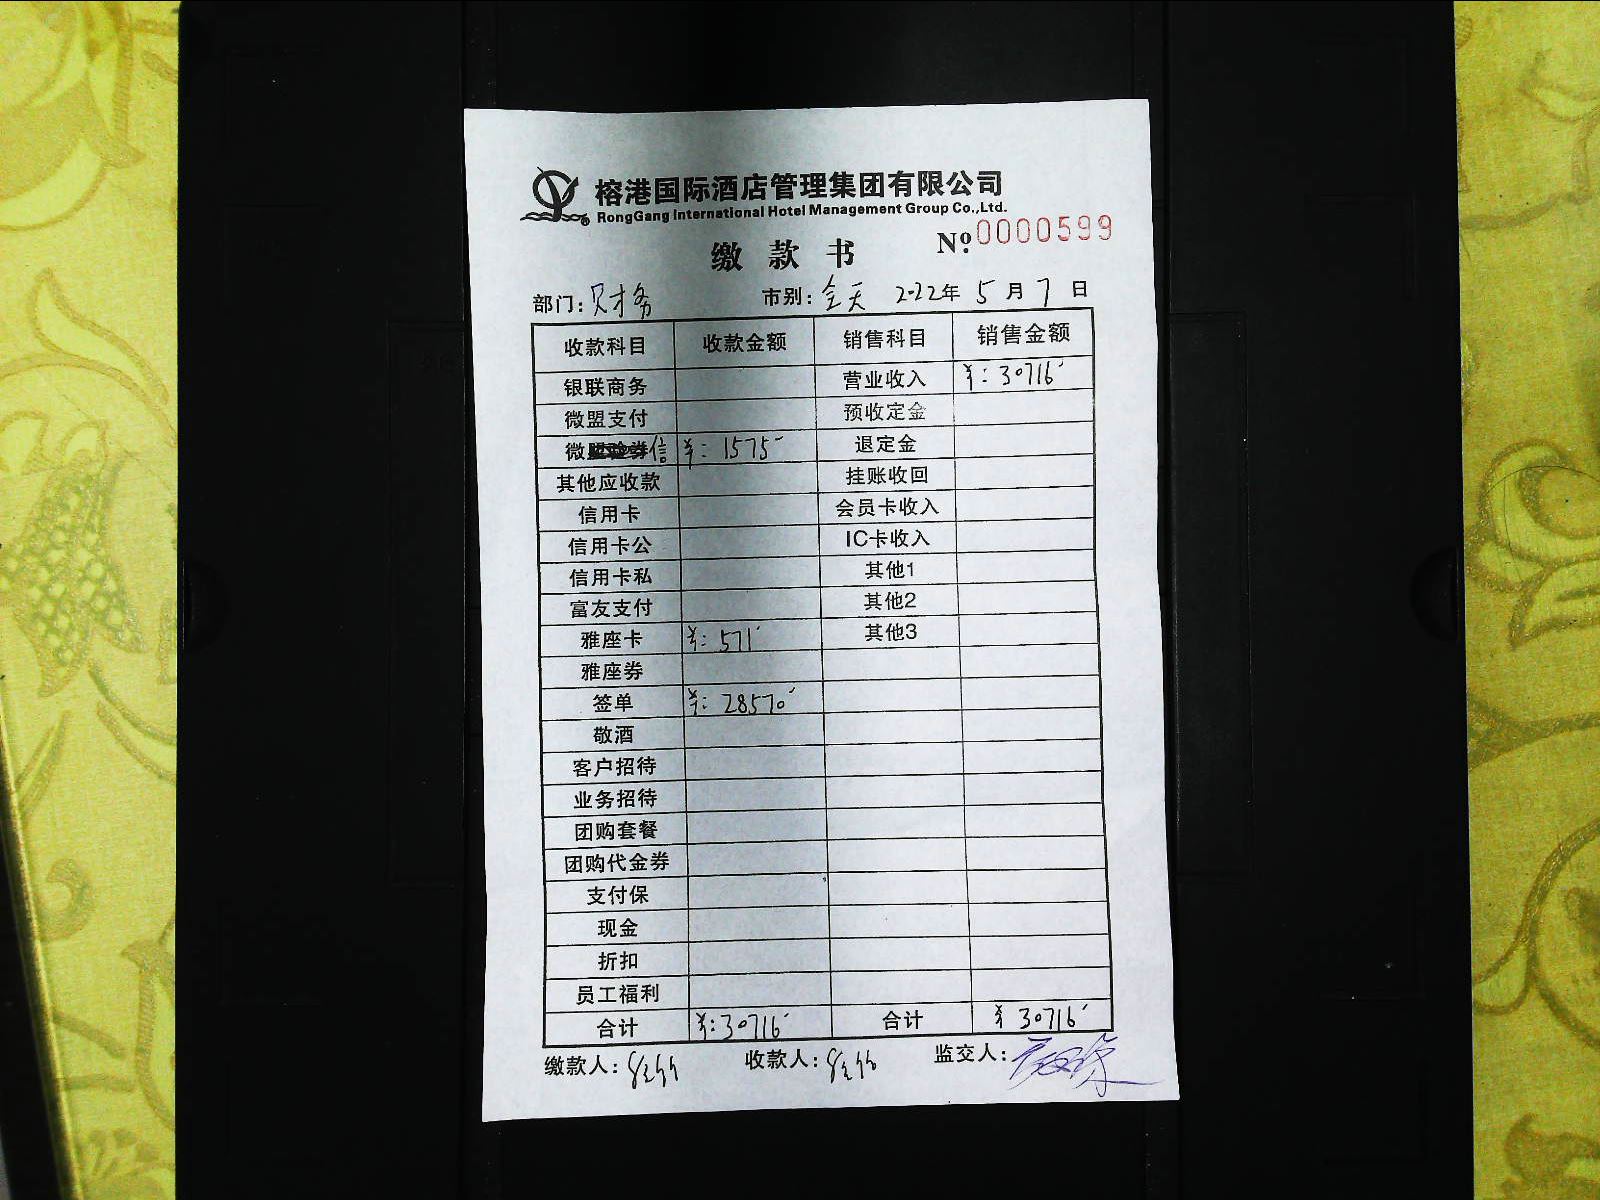 榕港国际酒店管理集团有限公司
RongGang International Hotel Management Group Co.,Ltd.
缴款书 Nº.0000599
部门:财务 市别:全天 2022年5月7日
收款科目 收款金额 销售科目 销售金额
银联商务 营业收入 ¥:30716
微盟支付 预收定金
微信 ¥:1575 退定金
其他应收款 挂账收回
信用卡 会员卡收入
信用卡公 IC卡收入
信用卡私 其他1
富友支付 其他2
雅座卡 ¥:571 其他3
雅座券
签单 ¥:28570
敬酒
客户招待
业务招待
团购套餐
团购代金券
支付保
现金
折扣
员工福利
合计 ¥:30716 合计 ¥30716
缴款人: 收款人: 监交人: